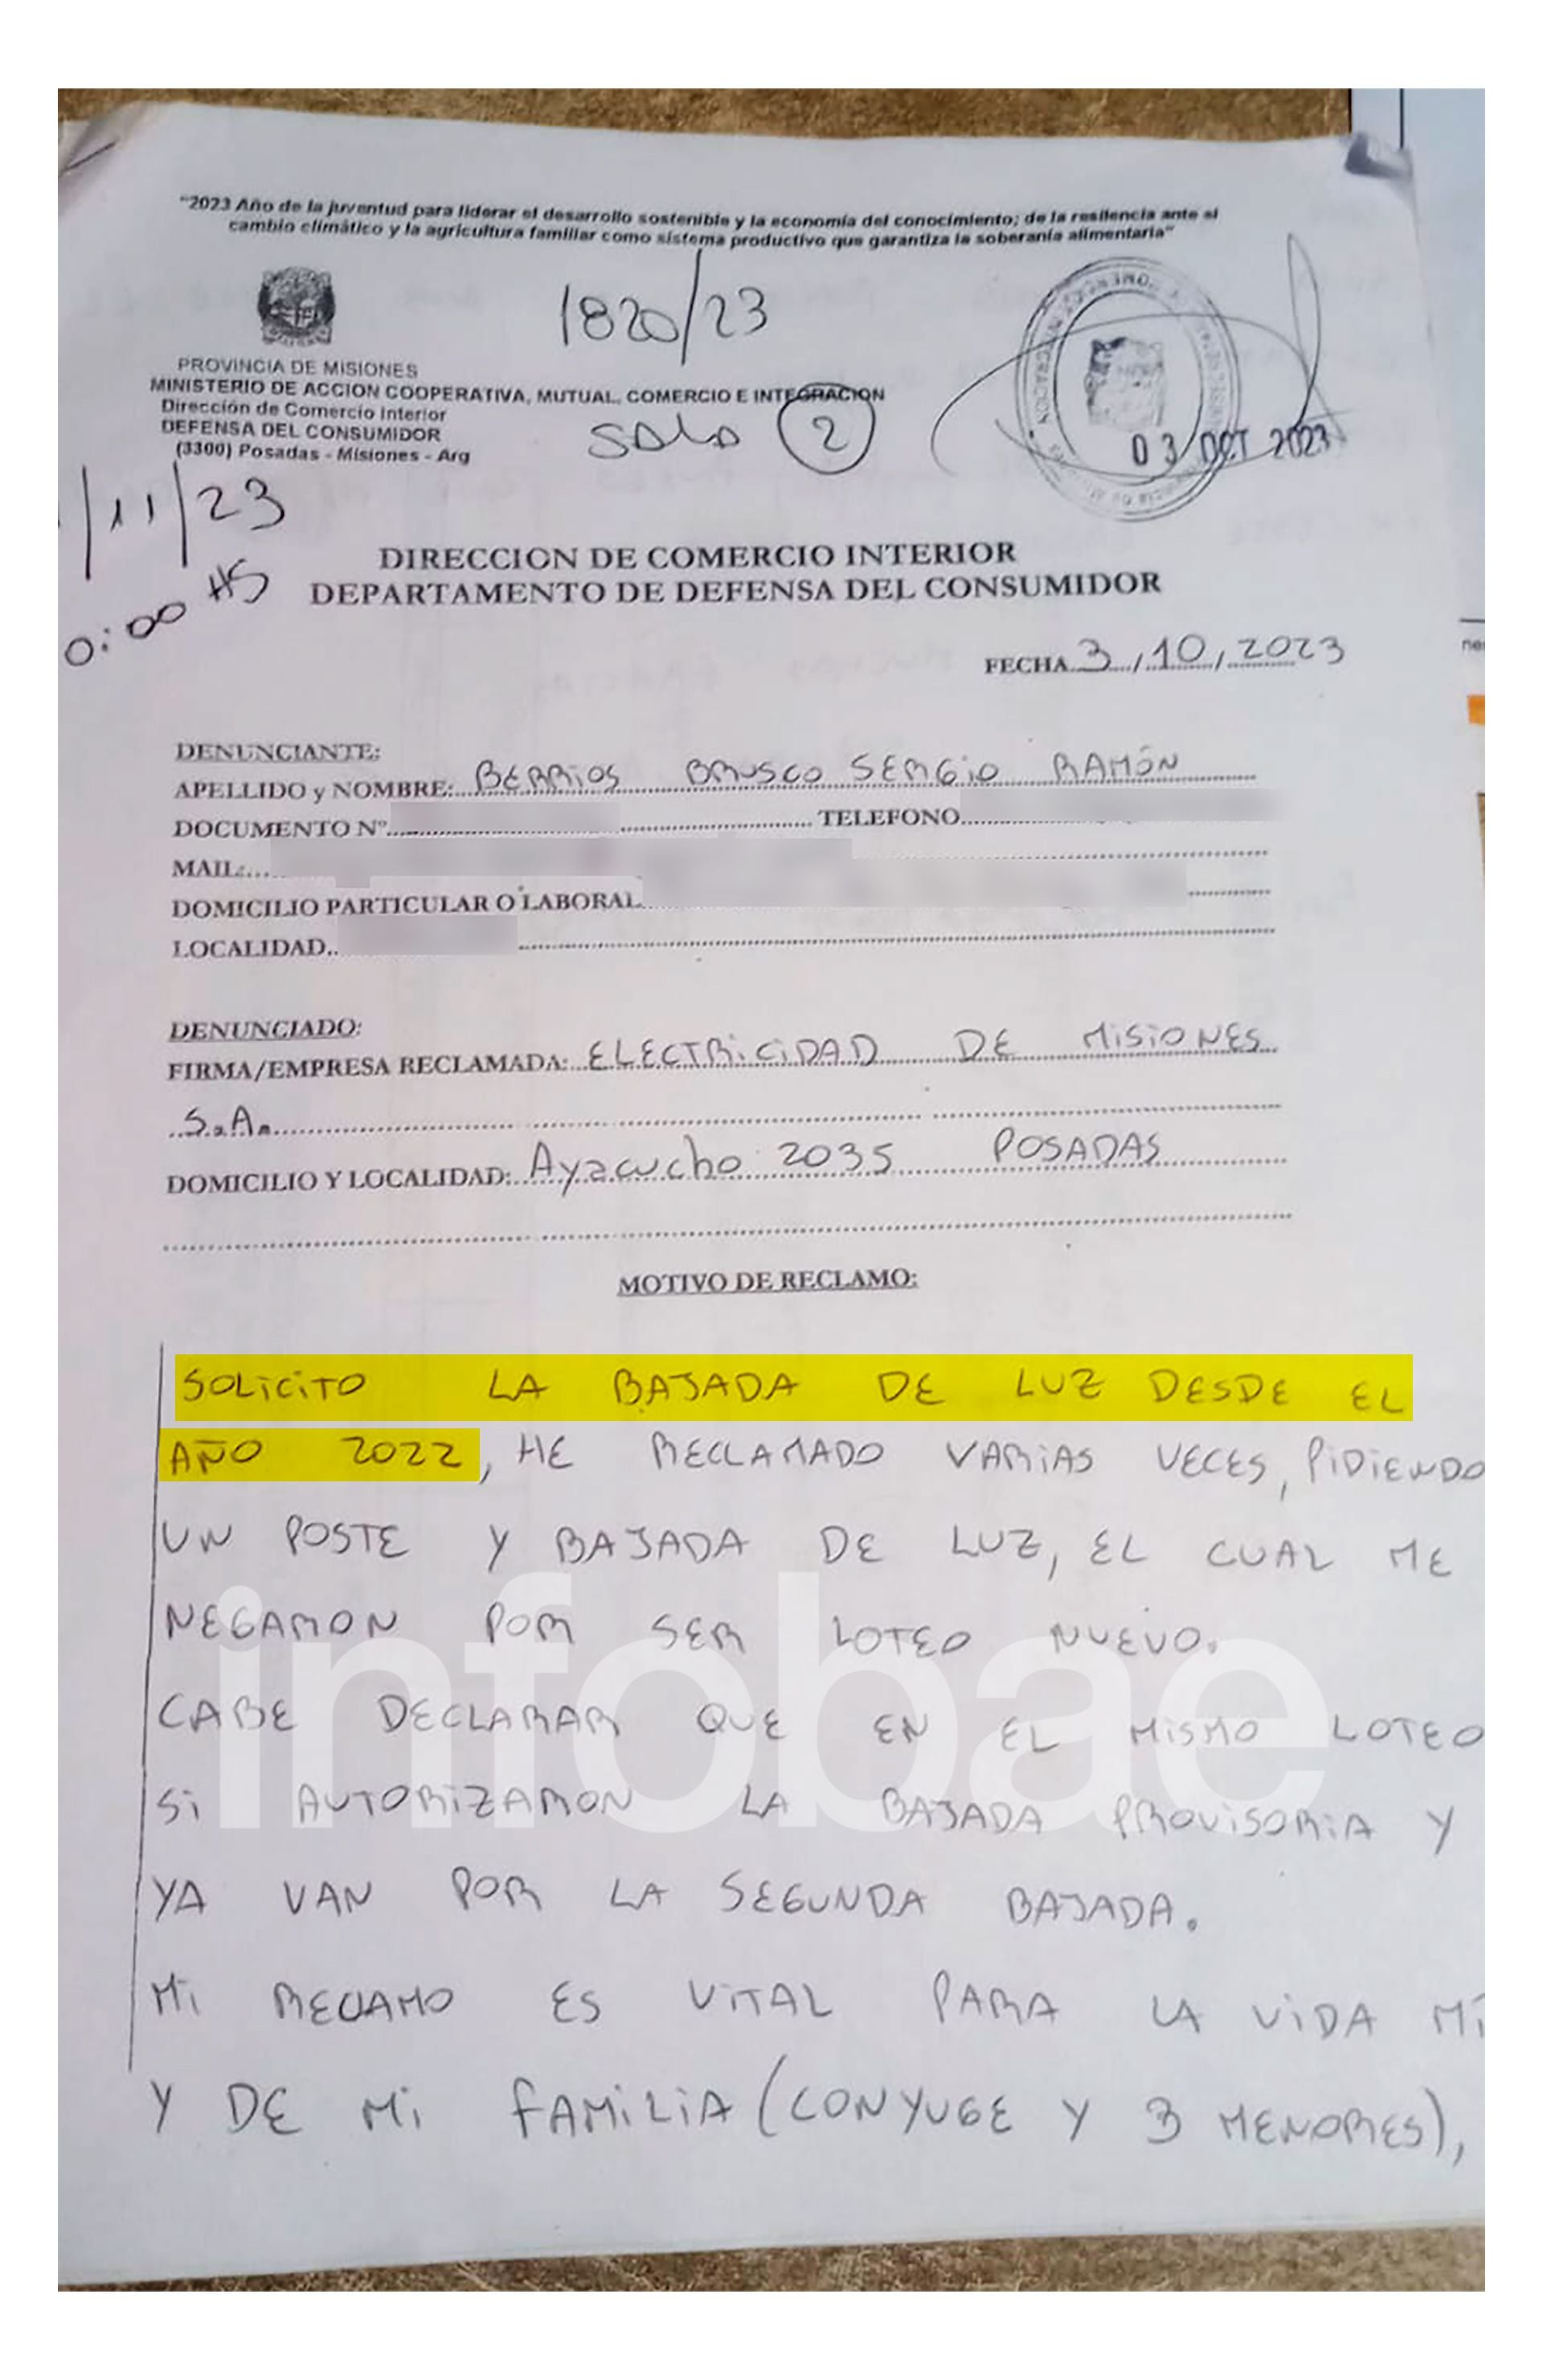 "2023 Año de la juventud para liderar el desarrollo sostenible y la economía del conocimiento; de la resilencia ante el
cambio climático y la agricultura familiar como sistema productivo que garantiza la soberanía alimentaria"
1820/23
PROVINCIA DE MISIONES
MINISTERIO DE ACCION COOPERATIVA, MUTUAL, COMERCIO E INTEGRACION
Dirección de Comercio Interior
DEFENSA DEL CONSUMIDOR
(3300) Posadas - Misiones - Arg
SALA 2
03 OCT 2023
/11/23
0:00 HS
DIRECCION DE COMERCIO INTERIOR
DEPARTAMENTO DE DEFENSA DEL CONSUMIDOR
FECHA 3/10/2023
DENUNCIANTE:
APELLIDO y NOMBRE: BERRIOS BRUSCO SERGIO RAMÓN
DOCUMENTO Nº TELEFONO
MAIL:
DOMICILIO PARTICULAR O LABORAL
LOCALIDAD
DENUNCIADO:
FIRMA/EMPRESA RECLAMADA: ELECTRICIDAD DE MISIONES
S.A.
DOMICILIO Y LOCALIDAD: Ayacucho 2035 POSADAS
MOTIVO DE RECLAMO:
SOLICITO LA BAJADA DE LUZ DESDE EL
AÑO 2022, HE RECLAMADO VARIAS VECES, PIDIENDO
UN POSTE Y BAJADA DE LUZ, EL CUAL ME
NEGARON POR SER LOTEO NUEVO.
CABE DECLARAR QUE EN EL MISMO LOTEO
SI AUTORIZARON LA BAJADA PROVISORIA Y
YA VAN POR LA SEGUNDA BAJADA.
MI RECLAMO ES VITAL PARA LA VIDA MI
Y DE MI FAMILIA (CONYUGE Y 3 MENORES),
infobae